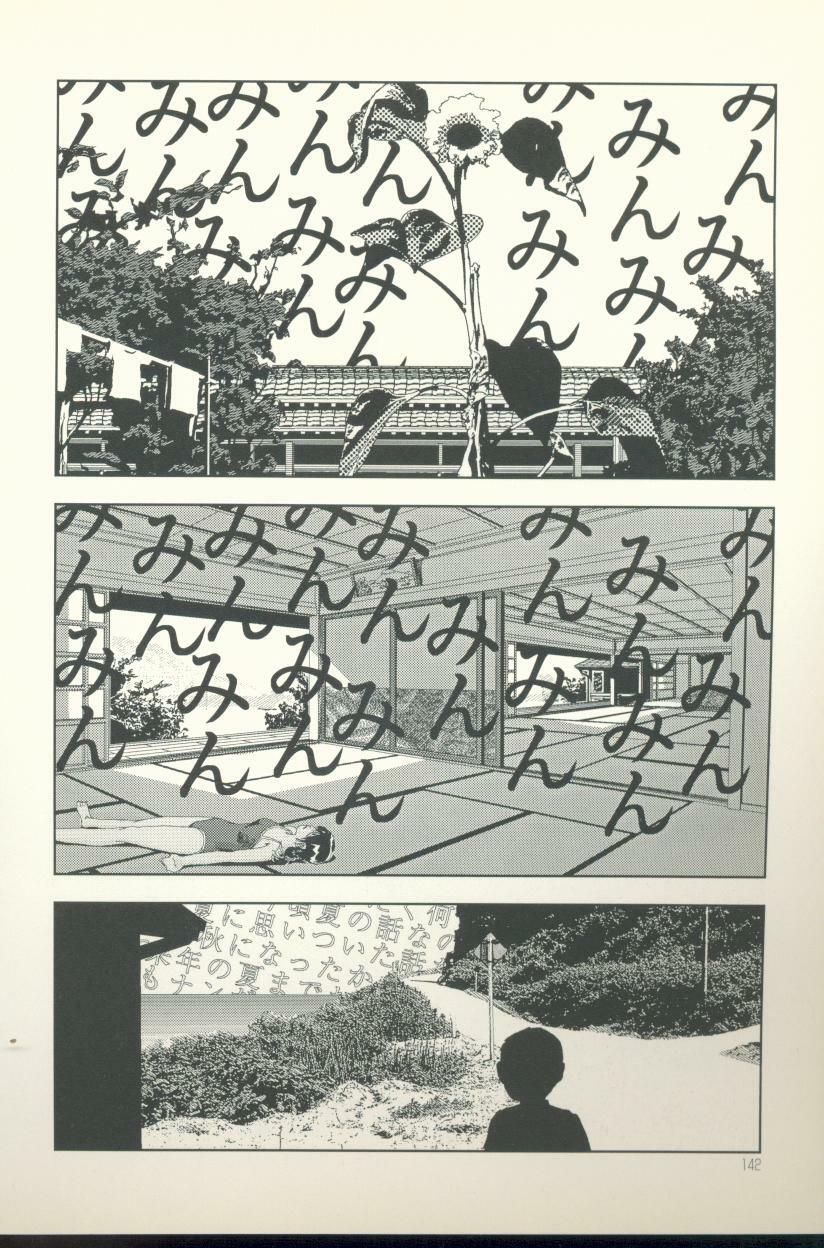 みん
み
みんみん
みんみん
ん
みん
みんみん
みん
み
みん
みんみ
みん
みん
みんみん
みんみん
みん
みん
みん
みんみん
みん
みん
みん
みんみん
何の
くな話
話た
のいか
夏つた
いっで
思なま
にに夏
夏秋の
年ナ
も
142